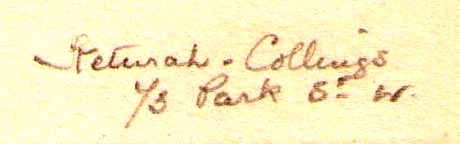 Keturah - Collings
73 Park St W.